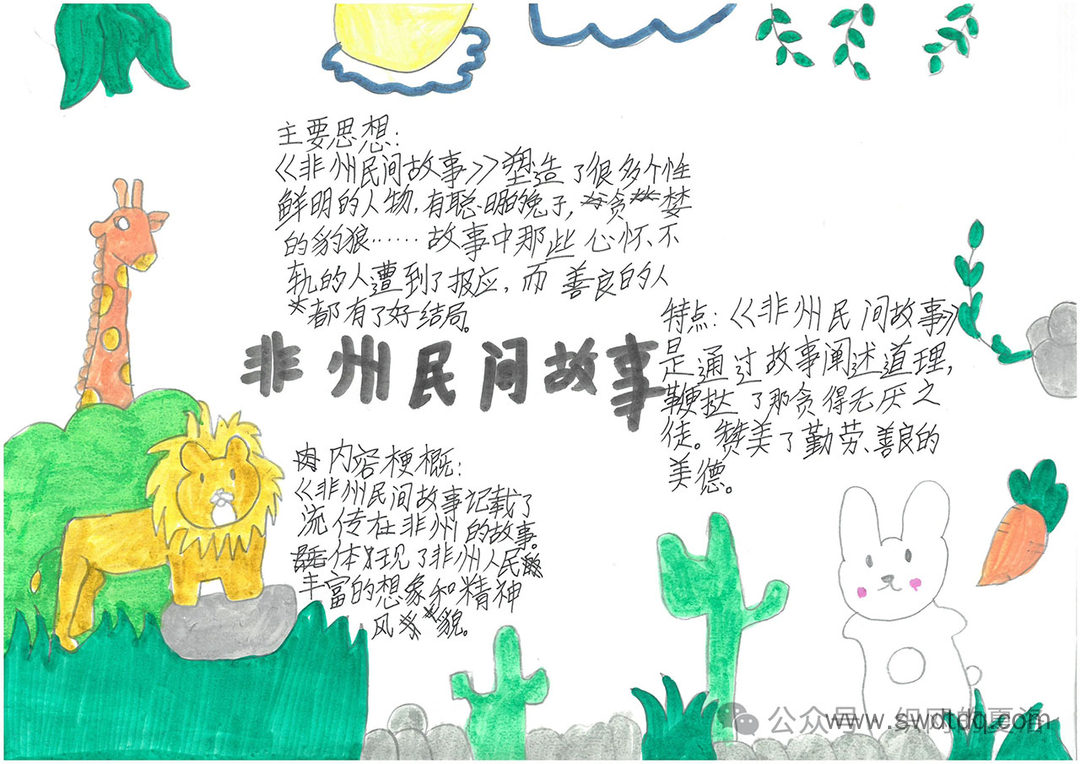 主要思想：
《非州民间故事》塑造了很多个性
鲜明的人物，有聪明的兔子，贪婪
的豹狼……故事中那些心怀不
轨的人遭到了报应，而善良的人
都有了好结局。
非州民间故事
特点：《非州民间故事》
是通过故事阐述道理，
鞭挞了那贪得无厌之
徒。赞美了勤劳、善良的
美德。
内容梗概：
《非州民间故事记载了
流传在非州的故事。
体现了非州人民
丰富的想象和精神
风貌。
公众号
www.swdtdq.com